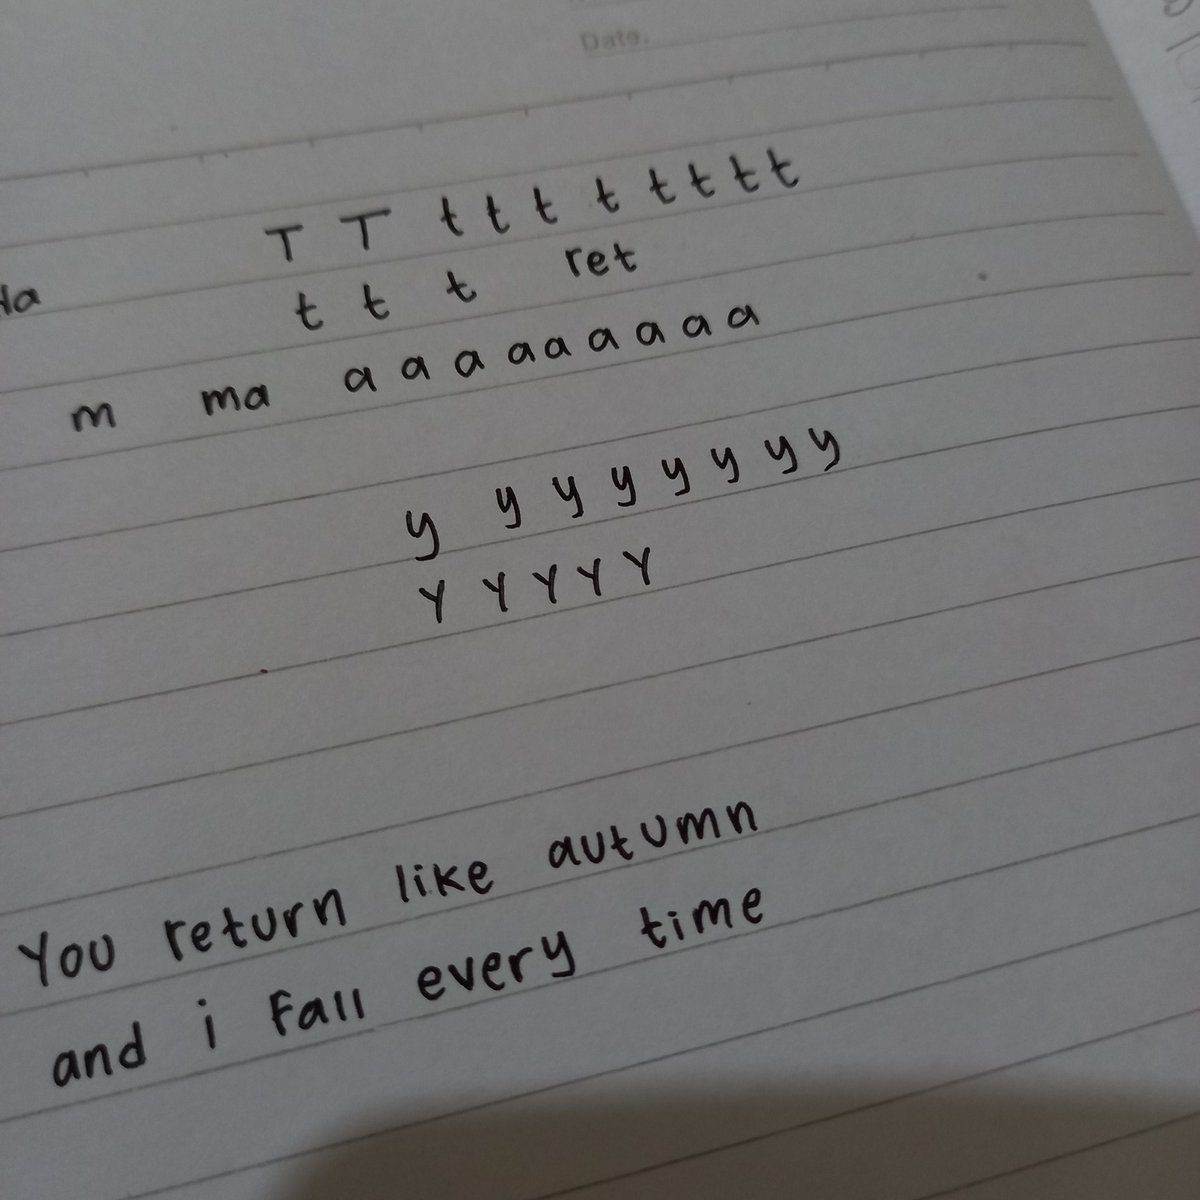 Date.
T T t t t t t t t t
t t t ret
m ma a a a a a a a a a
y y y y y y y y
Y Y Y Y Y
You return like autumn
and i fall every time